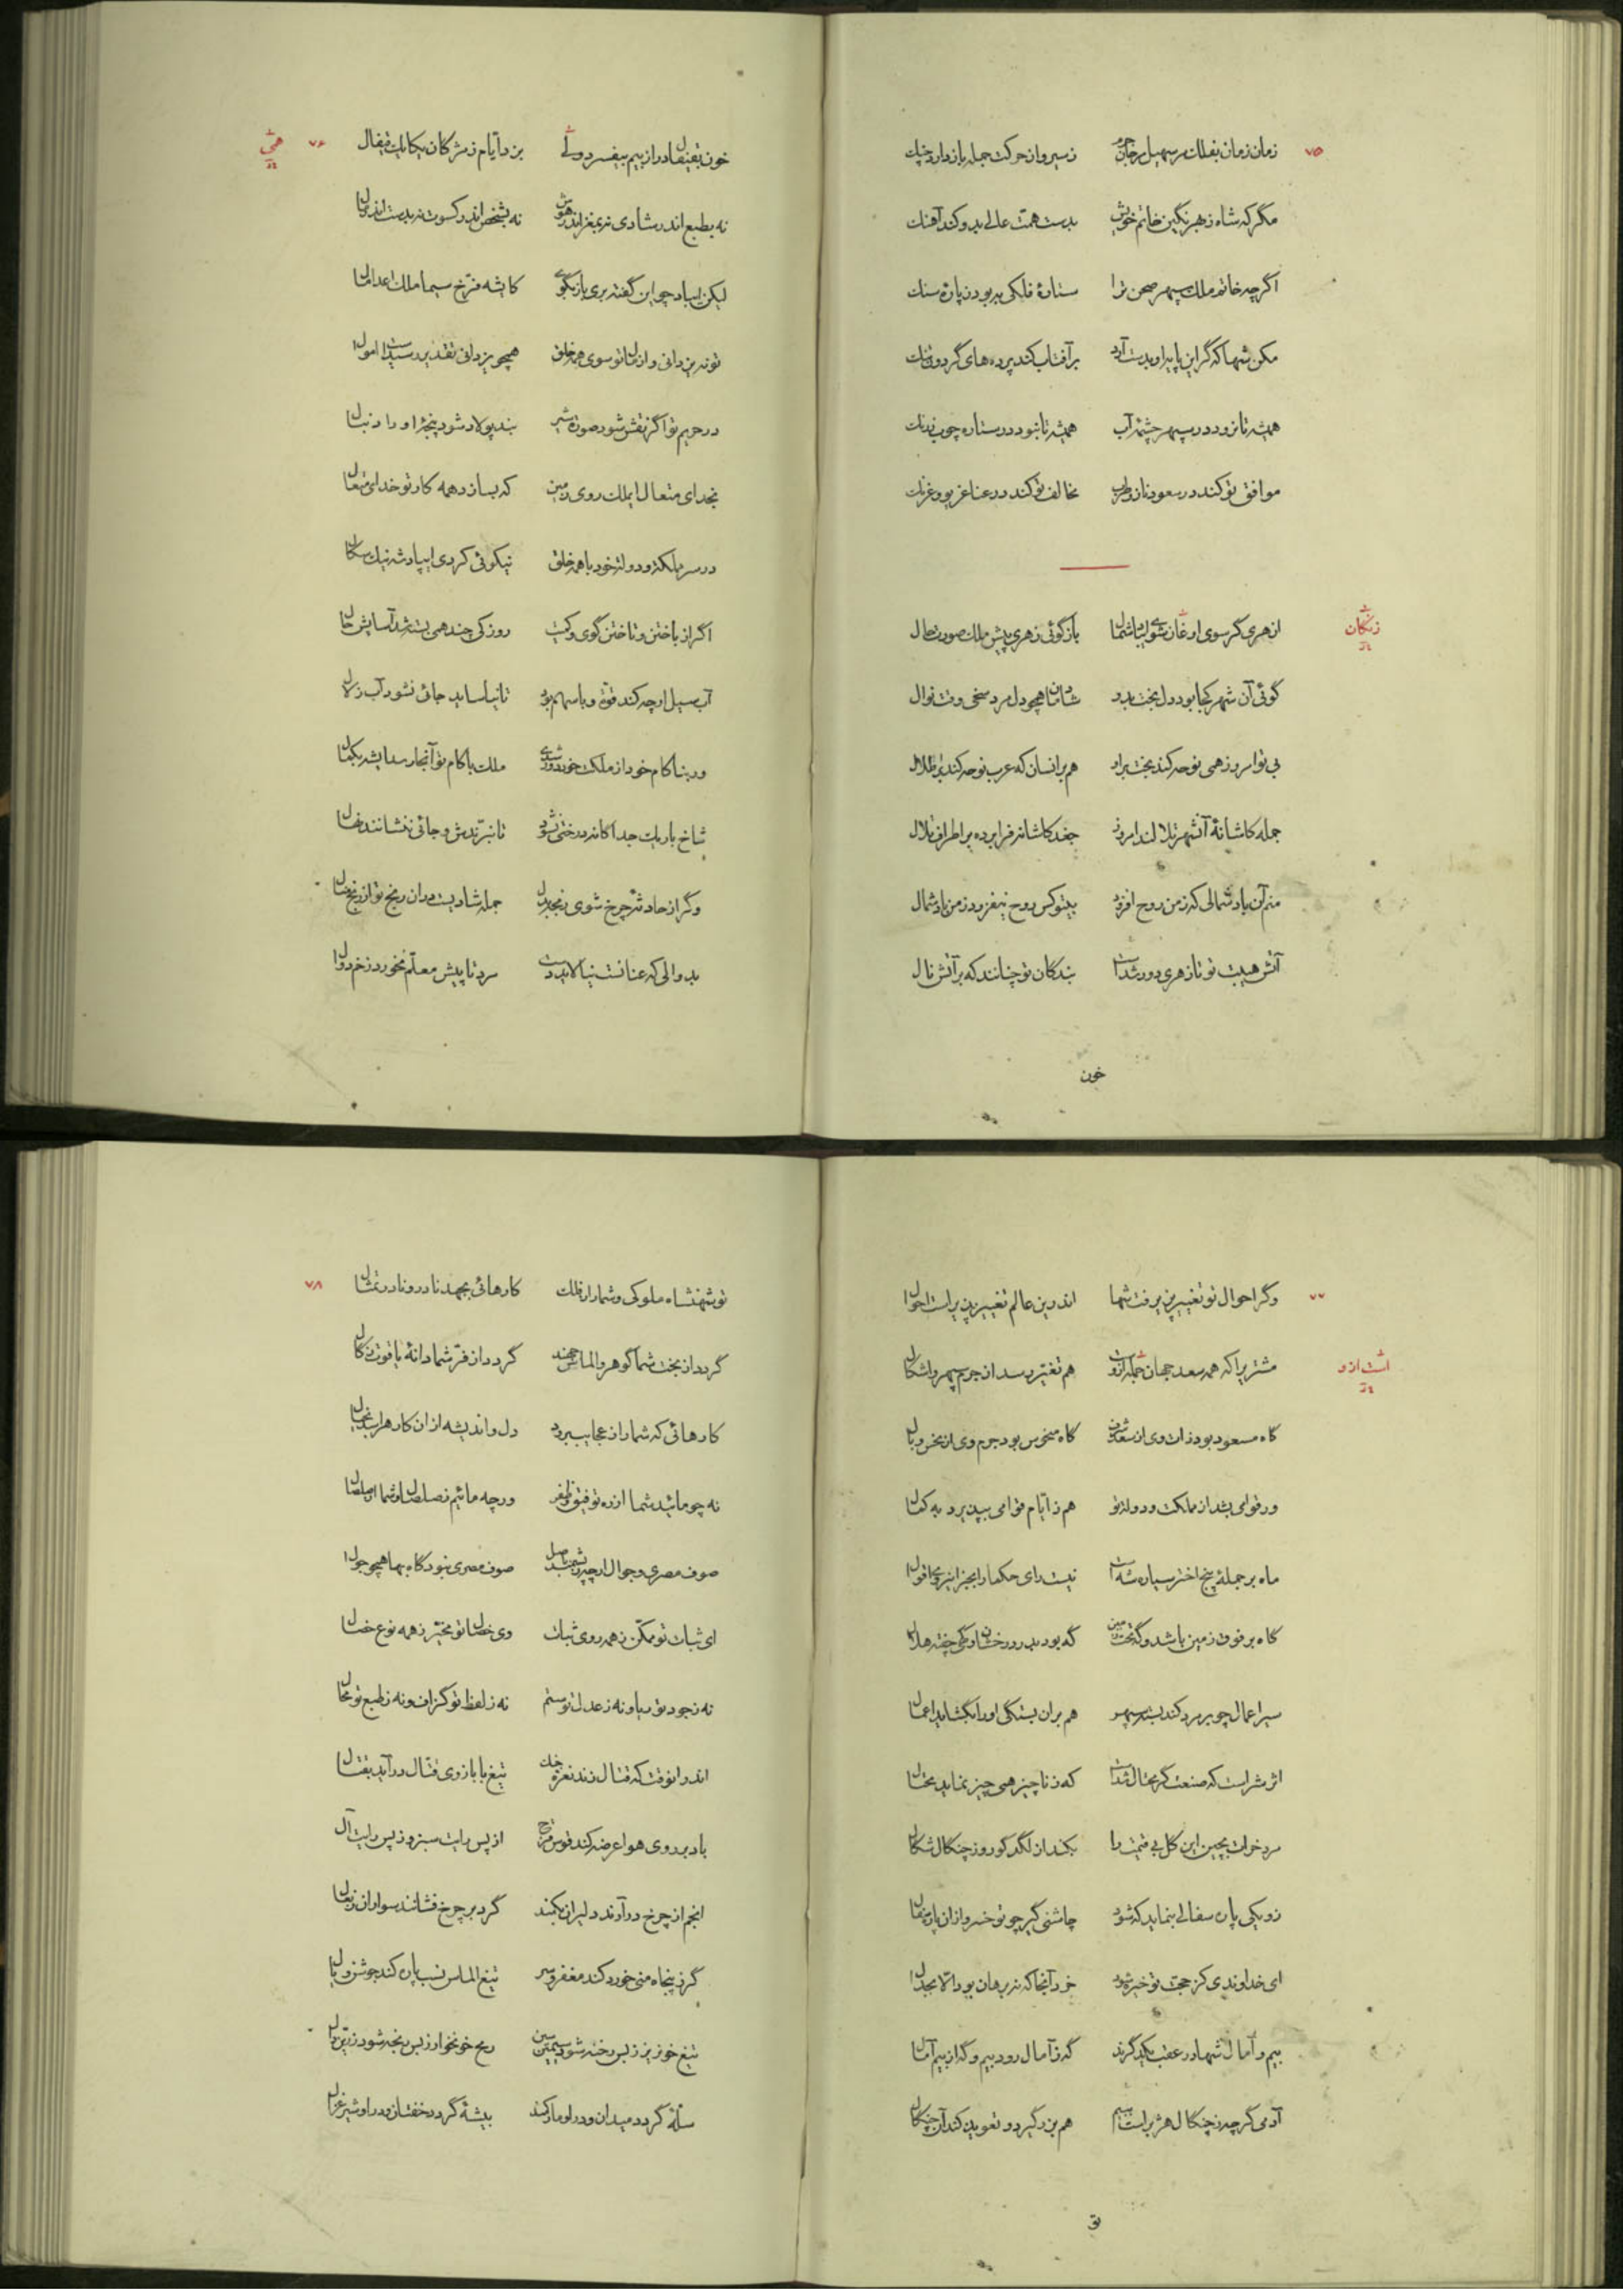 ۷۵
زمان زمان بفلک بر سهیل بر جان
ز سیر و از حرکت جمله باز دارد چنگ
مگر که شاه ز بهر نگین خاتم خویش
بدست همت عالی بدو کند آهنگ
اگرچه خاتم ملک سپهر صحن ترا
ستارهٔ فلکی به بود ز پارهٔ سنگ
مکن شها که گر این پایه او بدست آرد
بر آفتاب کند پرده‌های گردون تنگ
همیشه تا نرود در سپهر چشمهٔ آب
همیشه تا نبود در ستاره چوب خدنگ
موافق تو کند در سعود ناز و طرب
مخالف تو کند در عنا غریو و غرنگ
زنگان
از هری گر سوی ارغان شوی ای باد شمال
بازگوئی ز هری پیش ملک صورت حال
گوئی آن شهر کجا بود دل بخت بدو
شادمان همچو دل مرد سخی وقت نوال
بی تو امروز همی نوحه کند بخت براو
هم برانسان که عرب نوحه کند بر اطلال
جمله کاشانهٔ آنشهر تلالند امروز
جغد کاشانه فرا برده بر اطراف تلال
منم آن باد شمالی که ز من روح افزود
بیتو کس روح نیفزود ز من باد شمال
آتش هیبت تو تا ز هری دور شداست
بندگان تو چنانند که بر آتش نال
خون
۷۶
خون بقیفال در از بیم بیفسرد ولی
بزد ایام ز مژگان بیکایک قیفال
نه بطبع اندر شادی نه بمغز اندر هوش
نه بشخص اندر کسوت نه بدست اندر مال
لیکن ای باد چو این گفته بری بازبگوی
کایشه فرخ سیما ملک اعدا مال
تو نه یزدانی و از تو سوی همه خلق
همچو یزدانی تقدیر رسیدست اموال
در حریم تو اگر نقش شود صورت شیر
بند پولاد شود پنجهٔ او را دنبال
بخدای متعال ایملک روی زمین
که بسازد همه کار تو خدای متعال
در سر مملکت و دولت خود با همه خلق
نیکوئی کردی ای پادشه نیک سگال
اگر از باختن و تاختن گوی و کمیت
روزکی چند همی بسته شد آسایش حال
آب سیل ارچه کند قوة و با سهم بود
تا نیاساید جائی نشود آب زلال
ور بناکام خود از ملکت خود دور شدی
ملک با کام تو آنجا رسد ایشه بکمال
شاخ باریک جداگانه درختی نشود
تا نبرّندش و جائی ننشانند نهال
وگر از حادثهٔ چرخ شوی رنجه دل
جمله شادیست در ان رنج تو از رنج منال
بد والی که عنانست نیالاید دست
مرد تا پیش معلم نخورد زخم دوال
۷۷
وگر احوال تو تغییر پذیرفت شها
اندرین عالم تغییر پذیر است احوال
مشتریرا که همه سعد جهان جمله ازوست
هم تغیّر رسد از جرم سپهر و اشکال
است ازو
گاه مسعود بود ذات وی از سعد شرف
گاه منحوس بود جرم وی از نحس وبال
ور قوامی بشد از مملکت و دولت تو
هم ز ایام قوامی بپذیرد به کمال
ماه بر جملهٔ پنج اختر سیاره شه است
نیست رای حکما را بجز این رای اقوال
گاه بر فوق زمین باشد و گه تحت زمین
گه بود بدر درخشان و گهی چفته هلال
سیر اعمال چو بر مرد کند بسته سپهر
هم بران بستگی او را بگشاید اعمال
اثر شر است که صنعت گر محتال شداست
که ز ناچیز همی چیز نماید محتال
مرد خواهد بچین این گل بی قیمت را
بکند از لگد کور و ز چنگال شگال
زو یکی پاره سفالی بنماید که شود
چاشنی گیر چو تو خسرو ازان پاره سفال
ای خداوندی کز حجت تو خیره شود
خرد آنجا که نه برهان بود الا بجدال
بیم و آمال شها در عقب یکدگرند
گه ز آمال رود بیم و گه از بیم آمال
آدمی گرچه ز چنگال هژبر است به بیم
هم بزر گیرد و تعویذ کند آن چنگال
تو
۷۸
تو شهنشاه ملوکی و شما را ز فلک
کارهائی بجهد نادر و نادر تمثال
گردد از بخت شما گوهر و الماس جمند
گردد از فر شما دانهٔ یاقوت زکال
کارهائی که شما را ز عجایب ببرد
دل و اندیشه از ان کار هراسد بخیال
نه چو مائید شما از ره توفیق و ظفر
ورچه مائیم ز صلصال و شما از صلصال
صوف مصری و جوال ارچه ز پشمند باصل
صوف مصری نبود گاه بها همچو جوال
ای ثبات تو ممکن ز همه روی ثبات
وی خصال تو مخیّر ز همه نوع خصال
نه ز جود تو ریا و نه ز عدل تو ستم
نه ز لفظ تو گزاف و نه ز طبع تو محال
اندر انوقت که قتال زند نعرهٔ جنگ
تیغ با بازوی قتال درآید بقتال
باد بر روی هوا عرضه کند قوس قزح
از پس رایت سبز و ز پس رایت آل
انجم از چرخ درآرند دلیران بکمند
گرد بر چرخ فشانند سواران ز نعال
گرز پنجاه منی خورد کند مغفر و سر
تیغ الماس نسب پاره کند جوشن و یال
تیغ خونریز ز بس رخنه شود سیمین سین
رمح خونخوار ز بس رنجه شود زرین دال
سلّهٔ گردد میدان و در او مار کمند
بیشهٔ گردد خفتان و در او شیر غزال